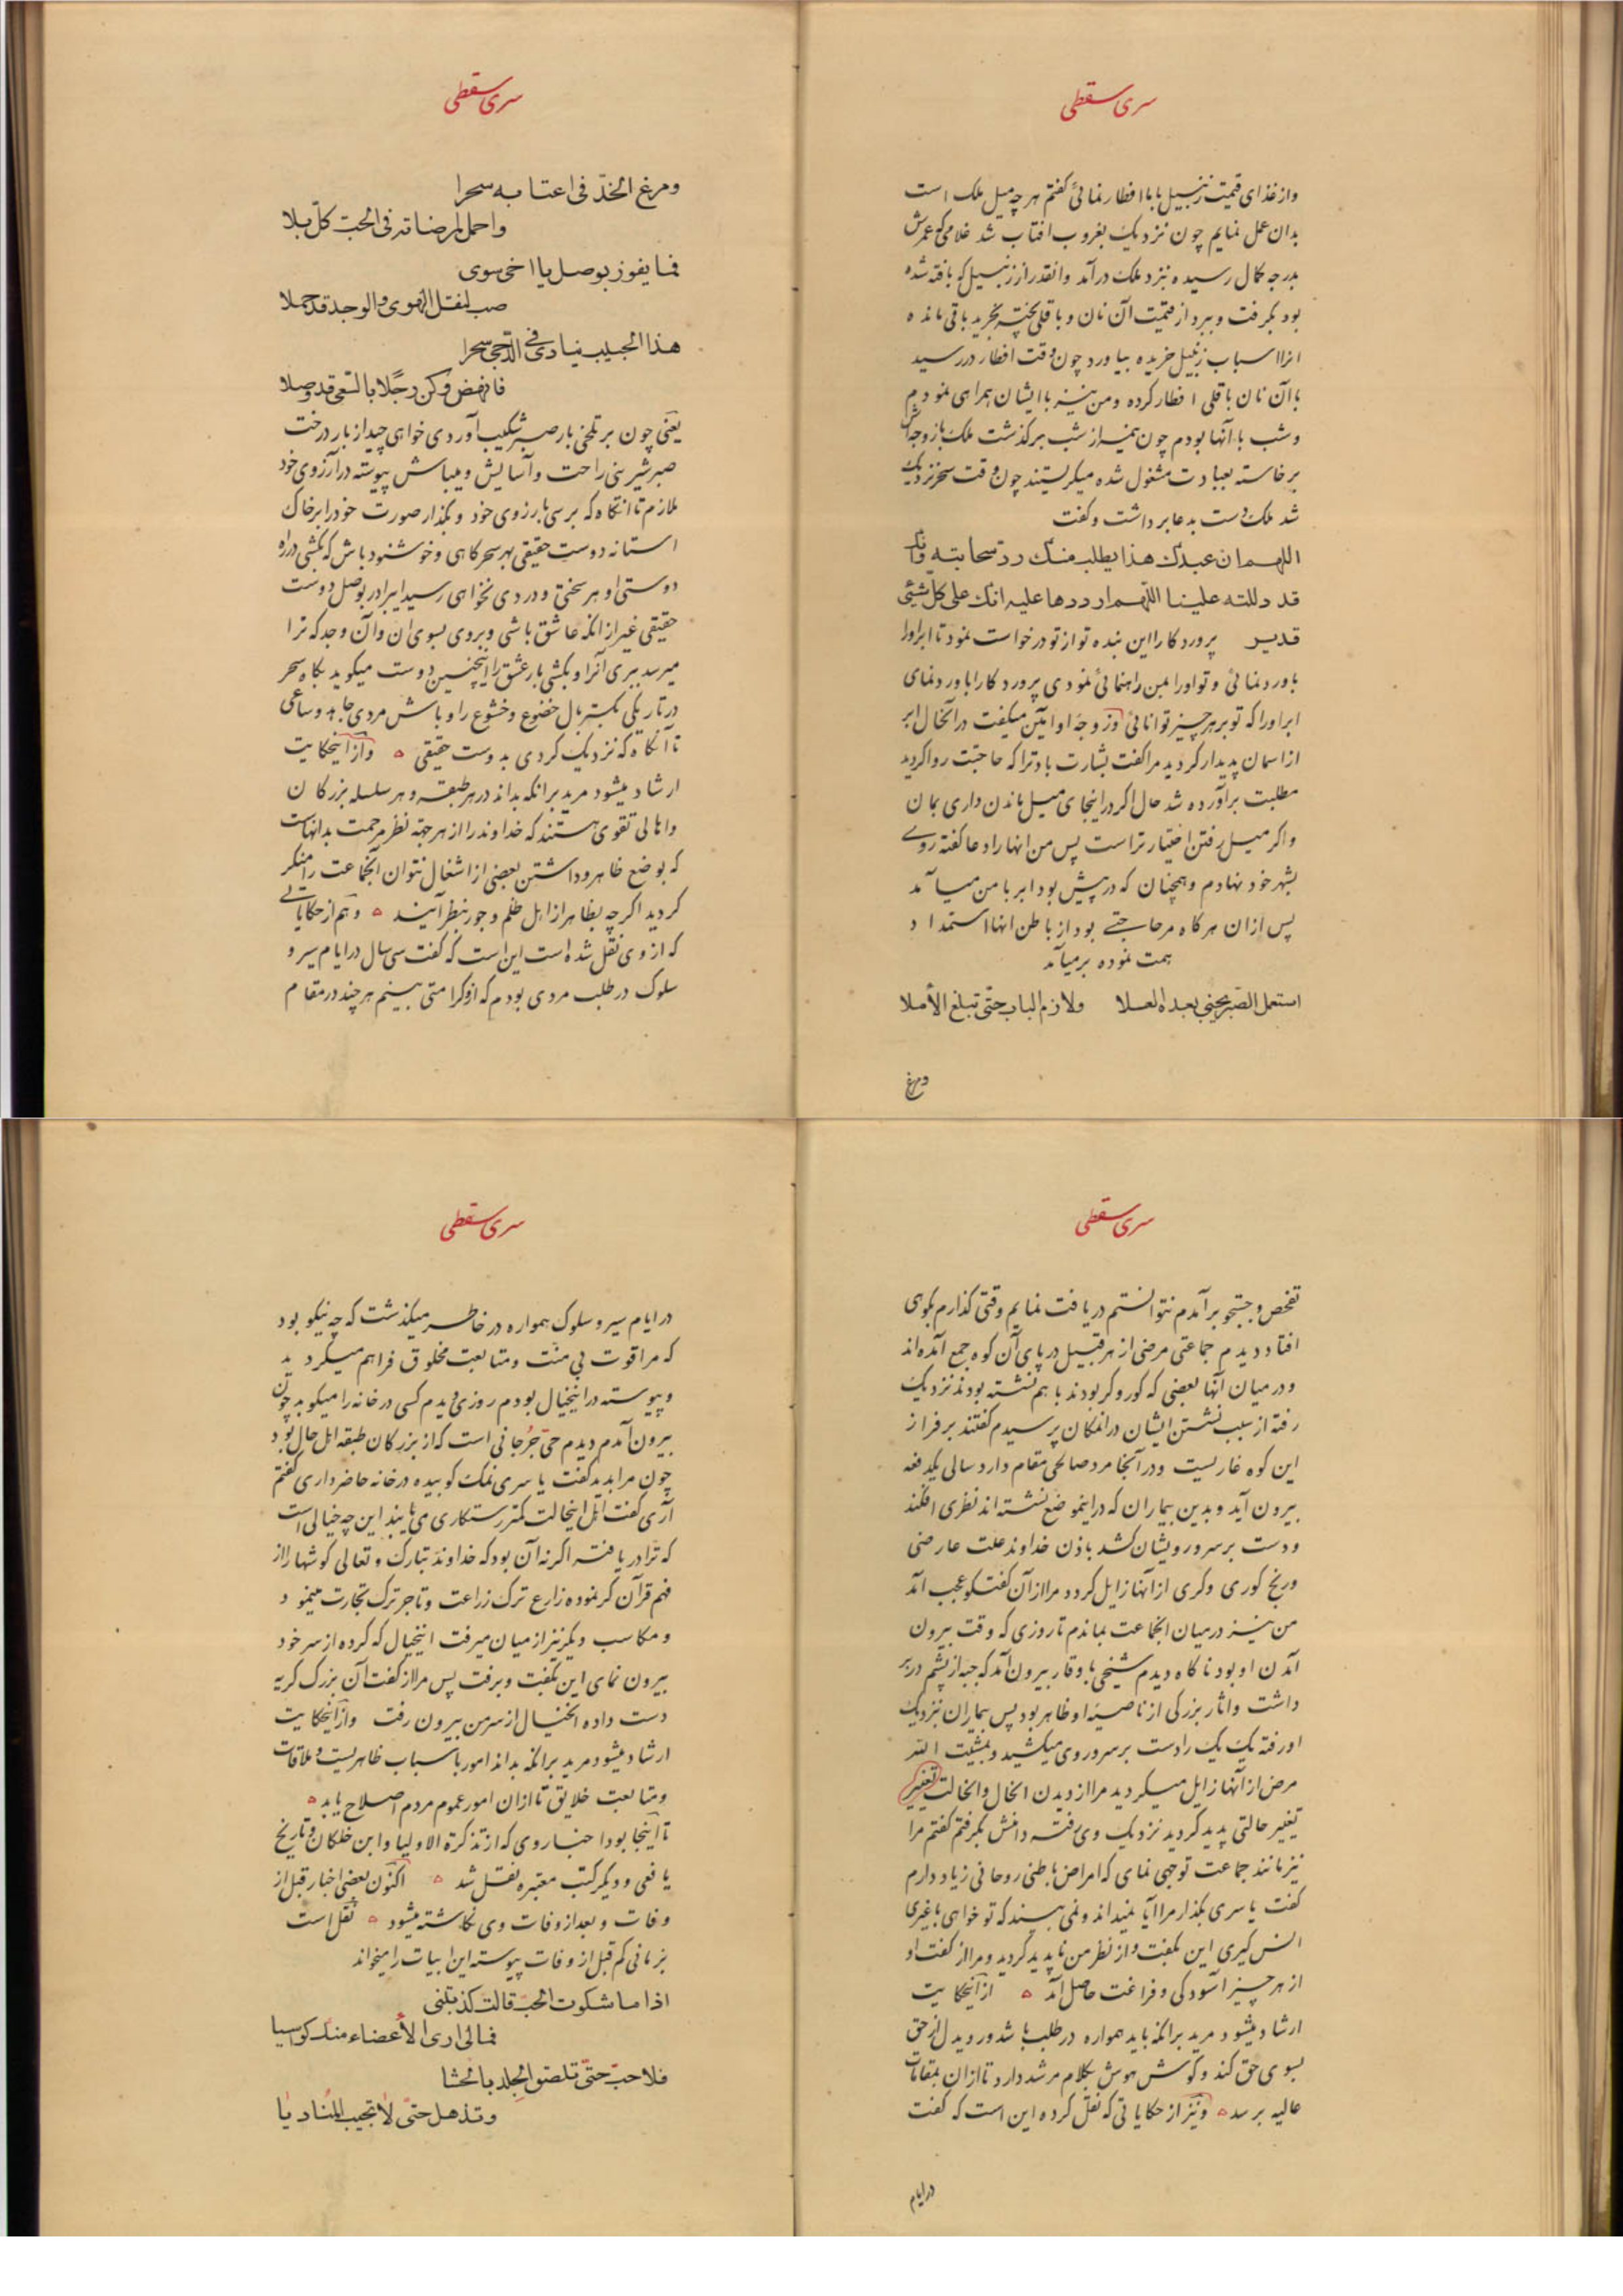 سری سقطی
واز غذای قیمت زنبیل با ما افطار نمائی گفتم هر چه میل ملک است
بدان عمل نمایم چون نزدیک بغروب افتاب شد غلامی که عمرش
بدرجه کمال رسیده نزد ملک درآمد وانقدر از زنبیل که بافته شده
بود بگرفت و ببرد از قیمت آن نان و باقلی پخته بخرید باقی مانده
انرا اسباب زنبیل خریده بیاورد چون وقت افطار دررسید
با آن نان باقلی افطار کرده ومن نیز با ایشان همراهی نمودم
و شب با آنها بودم چون نیمه از شب برگذشت ملک با زوجه اش
برخاسته بعبادت مشغول شده میگریستند چون وقت سحر نزدیک
شد ملک دست بدعا برداشت و گفت
اللهم ان عبدک هذا یطلب منک رد سحابته وانک
قد دللته علینا اللهم ارددها علیه انک علی کل شیئ
قدیر پروردگارا این بنده تو از تو درخواست نمود تا ابر اورا
باورد نمائی و تو اورا بمن راهنمائی نمودی پروردگارا باورد نمای
ابر اورا که تو بر هر چیز توانائی وزوجه او امین میگفت در آنحال ابر
از اسمان پدیدار گردید مرا گفت بشارت باد ترا که حاجتت روا گردید
مطلبت برآورده شد حال اگر در اینجای میل ماندن داری بمان
واگر میل رفتن اختیار تراست پس من انها را دعا گفته روی
بشهر خود نهادم و همچنان که در پیش بود ابر با من میآمد
پس ازان هر گاه مر حاجتی بود از باطن انها استمداد
همت نموده برمیآمد
استعمل الصبر تجنی بعده العسلا ولازم الباب حتی تبلغ الأملا
ومرغ
سری سقطی
ومرغ الخد فی اعتابه سحرا
واحمل لمرضاته فی الحب کل بلا
فما یفوز بوصل یا اخی سوی
صب لثقل الهوی والوجد قد حملا
هذا الحبیب ینادی فی الدجی سحرا
فانهض وکن رجلا بالسعی قد وصلا
یعنی چون بر تلخی بار صبر شکیب آوردی خواهی چید از بار درخت
صبر شیرینی راحت وآسایش و میباش پیوسته در آرزوی خود
ملازم تا انگاه که برسی بارزوی خود و بگذار صورت خود را بر خاک
استانه دوست حقیقی بهر سحرگاهی و خوشنود باش که بکشی در راه
دوستی او هر سختی و دردی نخواهی رسید ای برادر بوصل دوست
حقیقی غیر از انکه عاشق باشی و بروی بسوی ان وآن وجد که ترا
میرسد ببری آنرا و بکشی بار عشق را اینچنین دوست میگوید بگاه سحر
در تاریکی بگستر بال خضوع و خشوع را و باش مردی جاهد و ساعی
تا آنگاه که نزدیک کردی بدوست حقیقی و از اینحکایت
ارشاد میشود مرید بر انکه بداند در هر طبقه و هر سلسله بزرگان
واهالی تقوی هستند که خداوند را از هر جهة نظر مرحمت بدانهاست
که بوضع ظاهر وداشتن بعضی از اشغال نتوان انجماعت را منکر
گردید اگر چه بظاهر از اهل ظلم و جور بنظر آیند و هم از حکایاتی
که از وی نقل شده است این است که گفت سی سال در ایام سیر و
سلوک در طلب مردی بودم که از و کرامتی بینم هر چند در مقام
سری سقطی
تفحص و جستجو برآمدم نتوانستم دریافت نمایم وقتی گذارم بکوهی
افتاد دیدم جماعتی مرضی از هر قبیل در پای آن کوه جمع آمده اند
و در میان آنها بعضی که کور و کر بودند با هم نشسته بودند نزدیک
رفته از سبب نشستن ایشان در انمکان پرسیدم گفتند بر فراز
این کوه غاریست و در آنجا مرد صالحی مقام دارد سالی یکدفعه
بیرون آید و بدین بیماران که در اینموضع نشسته اند نظری افکند
و دست بر سر و رویشان کشد باذن خداوند علت عارضی
ورنج کوری و کری از آنها زایل گردد مرا از آن گفتگو عجب آمد
من نیز در میان انجماعت بماندم تا روزی که وقت بیرون
آمدن او بود ناگاه دیدم شیخی با وقار بیرون آمد که جبه از پشم در بر
داشت و اثار بزرگی از ناصیه او ظاهر بود پس بیماران نزدیک
او رفته یک یک را دست بر سر و روی میکشید و بمشیت الله
مرض از آنها زایل میگردید مرا از دیدن انحال وانحالت تغییر
تغییر حالتی پدید گردید نزدیک وی رفته دامنش بگرفتم گفتم مرا
نیز مانند جماعت توجهی نمای که امراض باطنی روحانی زیاد دارم
گفت یا سری بگذار مرا آیا نمیداند و نمی بیند که تو خواهی با غیری
انس گیری این بگفت و از نظر من ناپدید گردید و مرا از گفت او
از هر چیز آسودگی و فراغت حاصل آمد از اینحکایت
ارشاد میشود مرید بر انکه باید همواره در طلب باشد و روی دل از حق
بسوی حق کند و گوش هوش بکلام مرشد دارد تا از ان بمقامات
عالیه برسد ونیز از حکایاتی که نقل کرده این است که گفت
در ایام
سری سقطی
در ایام سیر و سلوک همواره در خاطر میگذشت که چه نیکو بود
که مرا قوت بی منت و متابعت مخلوق فراهم میگردید
و پیوسته در اینخیال بودم روزی دیدم کسی در خانه را میکوبد چون
بیرون آمدم دیدم حی جرجانی است که از بزرگان طبقه اهل حال بود
چون مرا بدید گفت یا سری نمک کوبیده در خانه حاضر داری گفتم
آری گفت اهل اینحالت کمتر رستگاری می یابند این چه خیالی است
که ترا دریافته اگر نه آن بود که خداوند تبارک و تعالی گوشها را از
فهم قرآن کر نموده زارع ترک زراعت و تاجر ترک تجارت مینمود
و مکاسب دیگر نیز از میان میرفت اینخیال که کرده از سر خود
بیرون نمای این بگفت و برفت پس مرا از گفت آن بزرگ گریه
دست داده انخیال از سر من بیرون رفت واز اینحکایت
ارشاد میشود مرید بر انکه بداند امور با سباب ظاهریست و ملاقات
و متابعت خلایق تا از ان امور عموم مردم اصلاح یابد
تا اینجا بود اخبار وی که از تذکرة الاولیا و ابن خلکان و تاریخ
یافعی و دیگر کتب معتبره نقل شد اکنون بعضی اخبار قبل از
وفات و بعد از وفات وی نگاشته میشود نقل است
بزمانی کم قبل از وفات پیوسته این ابیات را میخواند
اذا ما شکوت الحب قالت کذبتنی
فمالی اری الأعضاء منک کواسیا
فلا حب حتی تلصق الجلد بالحشا
وتذهل حتی لا تجیب المنادیا